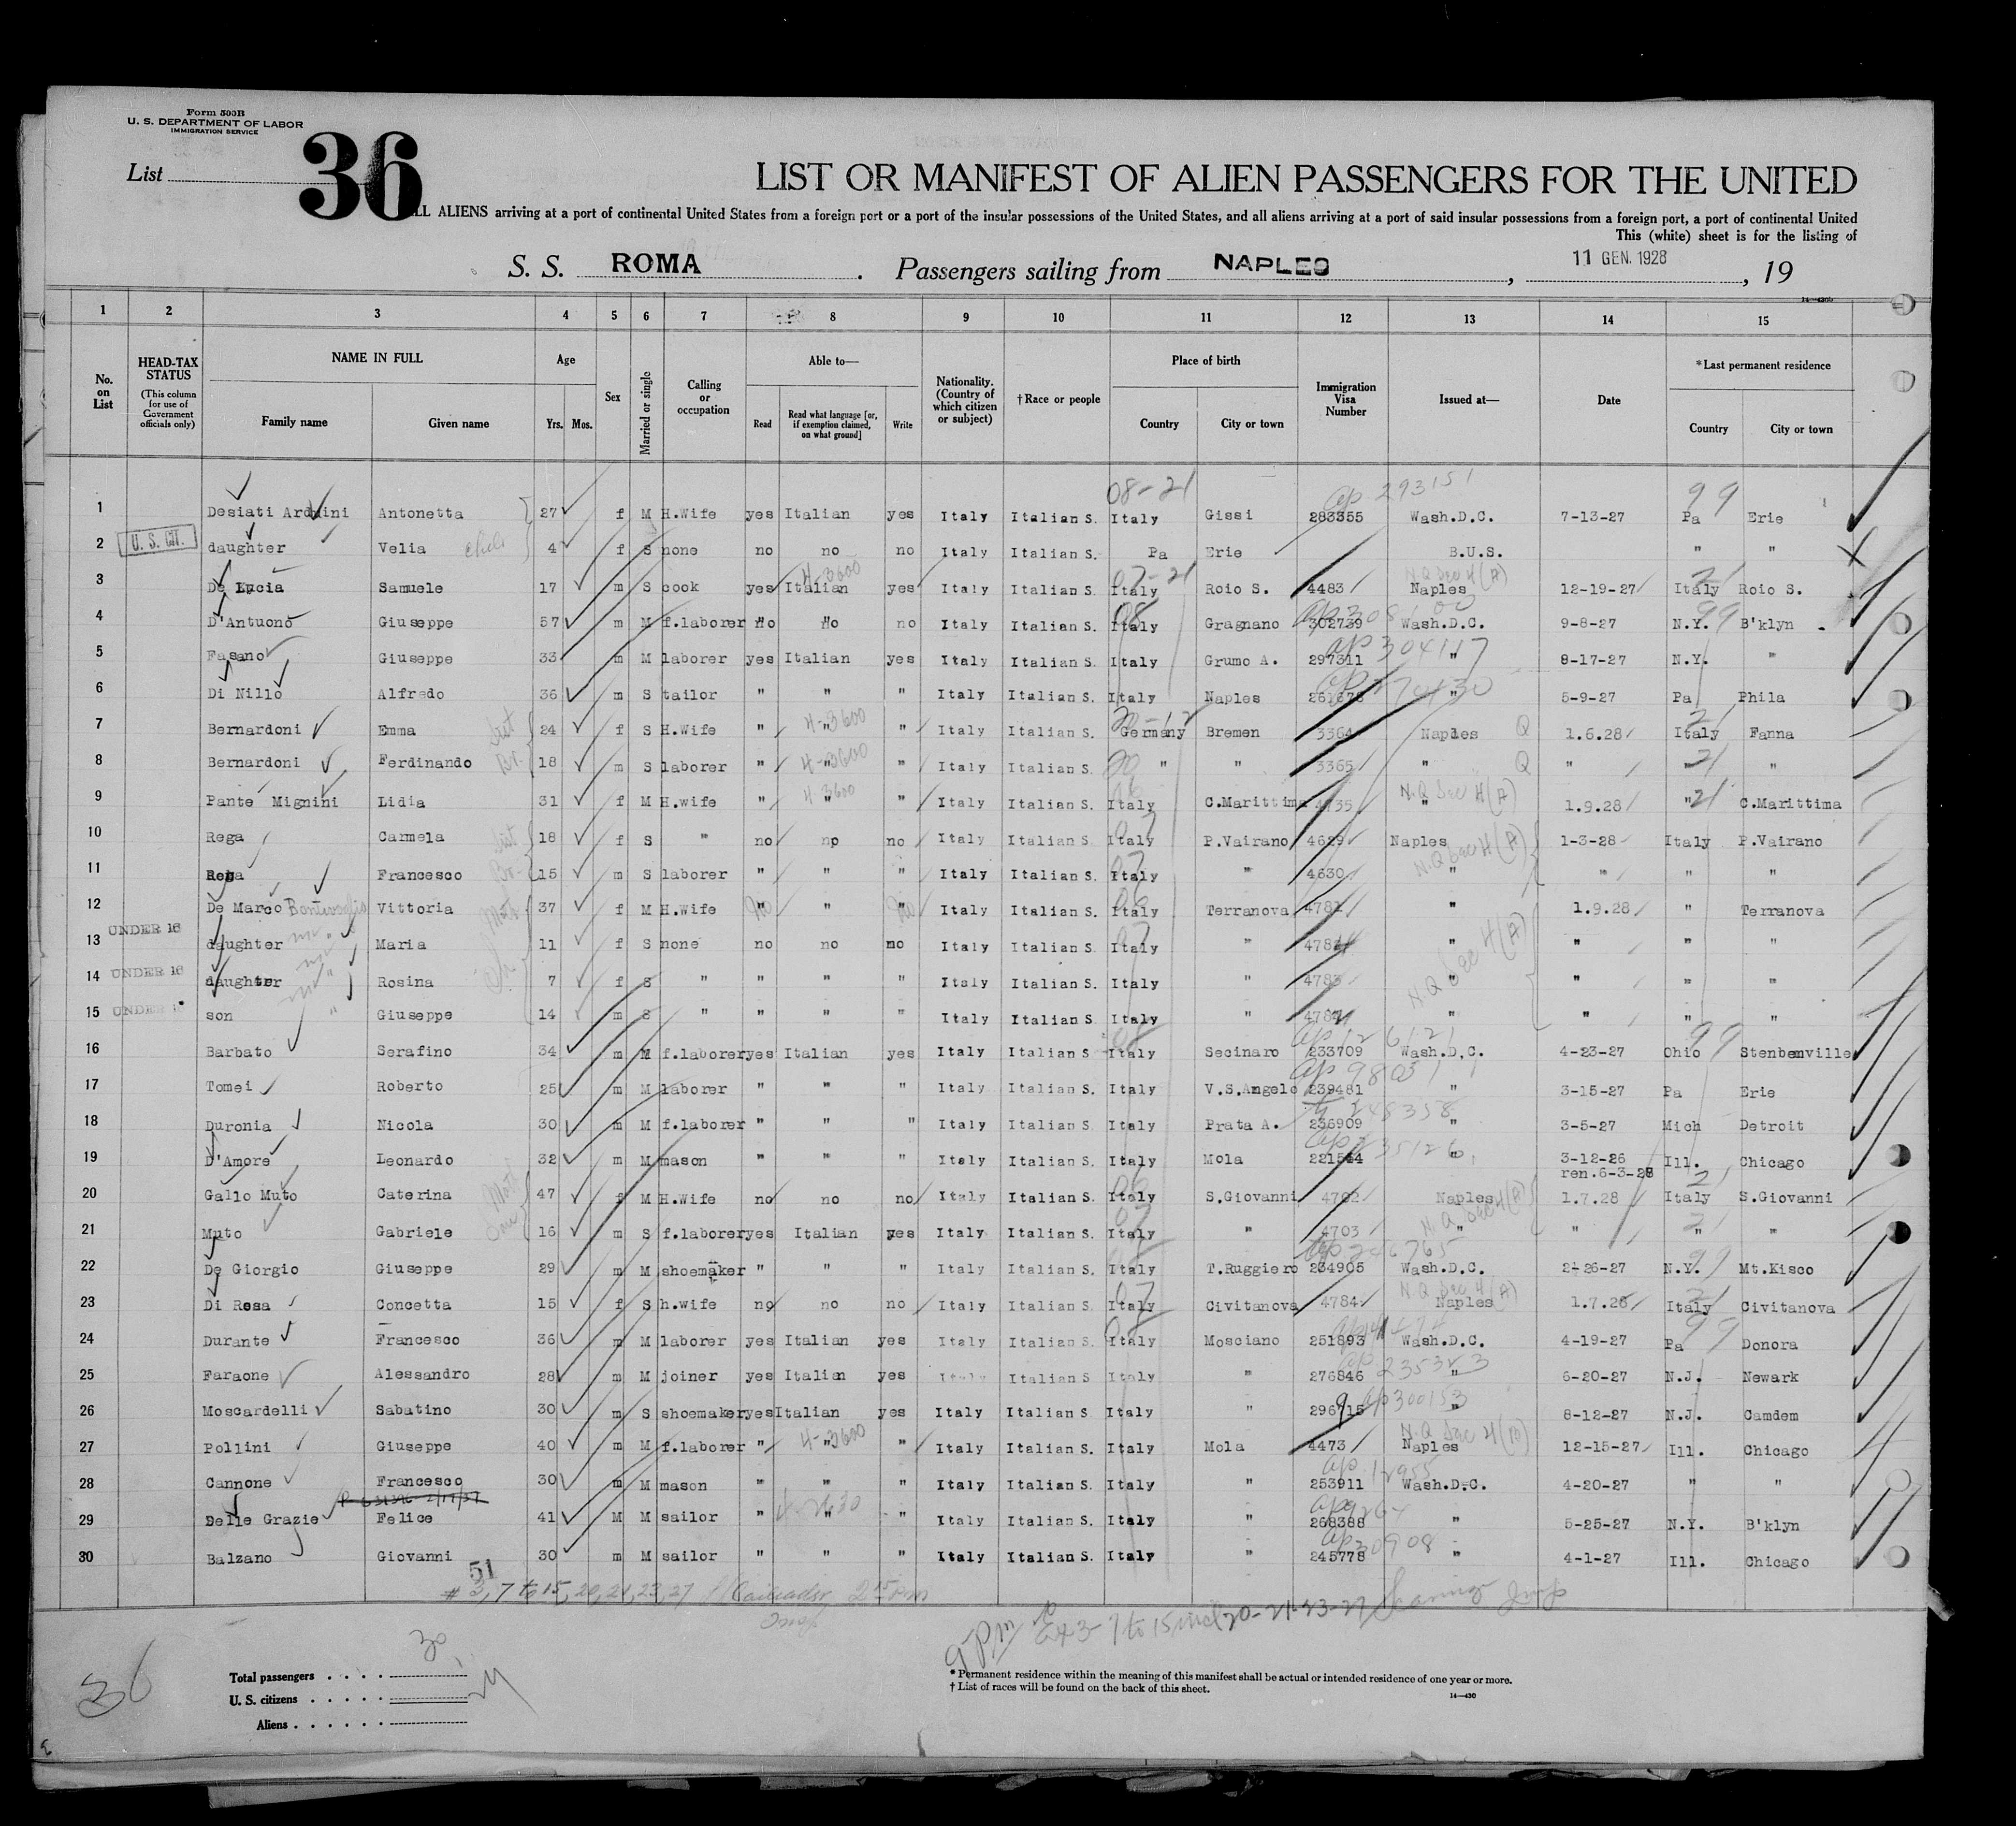 Form 500B
U. S. DEPARTMENT OF LABOR
IMMIGRATION SERVICE
List 36
LIST OR MANIFEST OF ALIEN PASSENGERS FOR THE UNITED
ALL ALIENS arriving at a port of continental United States from a foreign port or a port of the insular possessions of the United States, and all aliens arriving at a port of said insular possessions from a foreign port, a port of continental United
This (white) sheet is for the listing of
S. S. ROMA. Passengers sailing from NAPLES, 11 GEN. 1928, 19
1 2 3 4 5 6 7 8 9 10 11 12 13 14 15
No. on List
HEAD-TAX STATUS (This column for use of Government officials only)
NAME IN FULL Family name Given name
Age Yrs. Mos.
Sex
Married or single
Calling or occupation
Able to— Read Read what language [or, if exemption claimed, on what ground] Write
Nationality. (Country of which citizen or subject)
†Race or people
Place of birth Country City or town
Immigration Visa Number
Issued at—
Date
*Last permanent residence Country City or town
08-21 ap 293151 99
1 Desiati Arduini Antonetta 27 f M H.Wife yes Italian yes Italy Italian S. Italy Gissi 283355 Wash.D.C. 7-13-27 Pa Erie
2 U. S. CIT. daughter Velia 4 f S none no no no Italy Italian S. Pa Erie B.U.S. " "
3 De Lucia Samuele 17 m S cook yes Italian yes Italy Italian S. Italy Roio S. 4483 Naples 12-19-27 Italy Roio S.
4 D'Antuono Giuseppe 57 m M f.laborer no no no Italy Italian S. Italy Gragnano 302739 Wash.D.C. 9-8-27 N.Y. B'klyn
5 Fasano Giuseppe 33 m M laborer yes Italian yes Italy Italian S. Italy Grumo A. 297311 " 8-17-27 N.Y. "
6 Di Nillo Alfredo 36 m S tailor " " " Italy Italian S. Italy Naples " 5-9-27 Pa Phila
7 Bernardoni Emma 24 f S H.Wife " " " Italy Italian S. Germany Bremen 3364 Naples Q 1.6.28 Italy Fanna
8 Bernardoni Ferdinando 18 m S laborer " " " Italy Italian S. " " 3365 " Q " " "
9 Pante Mignini Lidia 31 f M H.wife " " " Italy Italian S. Italy C.Marittima " 1.9.28 " C.Marittima
10 Rega Carmela 18 f S " no no no Italy Italian S. Italy P.Vairano 4629 Naples 1-3-28 Italy P.Vairano
11 Rega Francesco 15 m S laborer " " " Italy Italian S. Italy " 4630 " " " "
12 De Marco Vittoria 37 f M H.Wife " " " Italy Italian S. Italy Terranova 4781 " 1.9.28 " Terranova
13 UNDER 16 daughter Maria 11 f S none no no no Italy Italian S. Italy " " " " "
14 UNDER 16 daughter Rosina 7 f S " " " " Italy Italian S. Italy " 4783 " " " "
15 UNDER 16 son Giuseppe 14 m S " " " " Italy Italian S Italy " " " " "
16 Barbato Serafino 34 m M f.laborer yes Italian yes Italy Italian S. Italy Secinaro 233709 Wash.D.C. 4-23-27 Ohio Stenbenville
17 Tomei Roberto 25 m M laborer " " " Italy Italian S. Italy V.S.Angelo 239481 " 3-15-27 Pa Erie
18 Duronia Nicola 30 m M f.laborer " " " Italy Italian S. Italy Prata A. 236909 " 3-5-27 Mich Detroit
19 D'Amore Leonardo 32 m M mason " " " Italy Italian S. Italy Mola " 3-12-26 Ill. Chicago
ren.6-3-28
20 Gallo Muto Caterina 47 f M H.Wife no no no Italy Italian S. Italy S.Giovanni 4702 Naples 1.7.28 Italy S.Giovanni
21 Muto Gabriele 16 m S f.laborer yes Italian yes Italy Italian S. Italy " 4703 " " " "
22 De Giorgio Giuseppe 29 m M shoemaker " " " Italy Italian S. Italy T.Ruggiero 234905 Wash.D.C. 2-26-27 N.Y. Mt.Kisco
23 Di Rosa Concetta 15 f S h.wife no no no Italy Italian S. Italy Civitanova 4784 Naples 1.7.28 Italy Civitanova
24 Durante Francesco 36 m M laborer yes Italian yes Italy Italian S. Italy Mosciano 251893 Wash.D.C. 4-19-27 Pa Donora
25 Faraone Alessandro 28 m M joiner yes Italian yes Italy Italian S Italy " 276846 " 6-20-27 N.J. Newark
26 Moscardelli Sabatino 30 m S shoemaker yes Italian yes Italy Italian S. Italy " " 8-12-27 N.J. Camdem
27 Pollini Giuseppe 40 m M f.laborer " " " Italy Italian S. Italy Mola 4473 Naples 12-15-27 Ill. Chicago
28 Cannone Francesco 30 m M mason " " " Italy Italian S. Italy " 253911 Wash.D.C. 4-20-27 " "
29 Delle Grazie Felice 41 M M sailor " " " Italy Italian S. Italy " 268388 " 5-25-27 N.Y. B'klyn
30 Balzano Giovanni 30 m M sailor " " " Italy Italian S. Italy " 245778 " 4-1-27 Ill. Chicago
51
# 3, 7 to 15, 20, 21, 23, 27
9 PM 3-7 to 15 incl 20-21-23-27
36
Total passengers 30
U. S. citizens
Aliens
* Permanent residence within the meaning of this manifest shall be actual or intended residence of one year or more.
† List of races will be found on the back of this sheet.
14—430